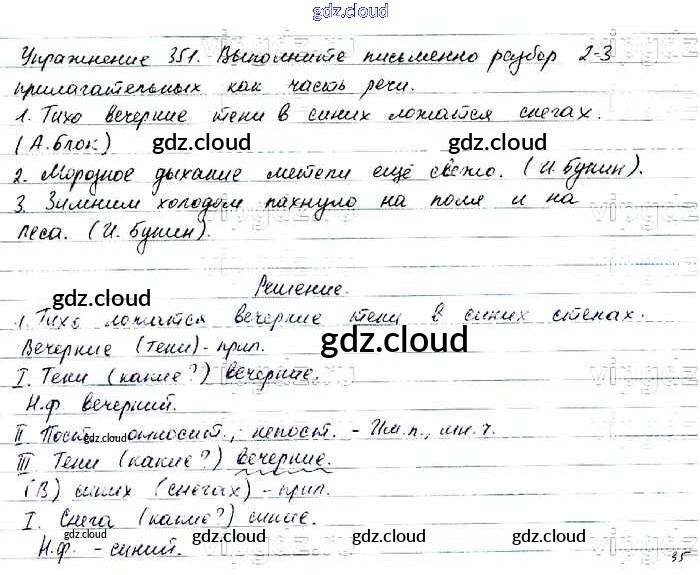 gdz.cloud
Упражнение 351. Выполните письменно разбор 2-3
прилагательных как часть речи.
1. Тихо вечерние тени в синих ложатся снегах.
(А. Блок) gdz.cloud gdz.cloud
2. Морозное дыхание метели ещё свежо. (И. Бунин).
3. Зимним холодом пахнуло на поля и на
леса. (И. Бунин).
Решение.
gdz.cloud
1. Тихо ложатся вечерние тени в синих стенах.
Вечерние (тени) - прил.
gdz.cloud
I. Тени (какие?) вечерние.
Н.ф вечерний.
II Пост. - относит.; непост. - Им.п., мн.ч.
gdz.cloud
III Тени (какие?) вечерние.
(В) синих (снегах) - прил.
I. Снега (какие?) синие.
gdz.cloud gdz.cloud gdz.cloud
Н.ф. - синий.
35